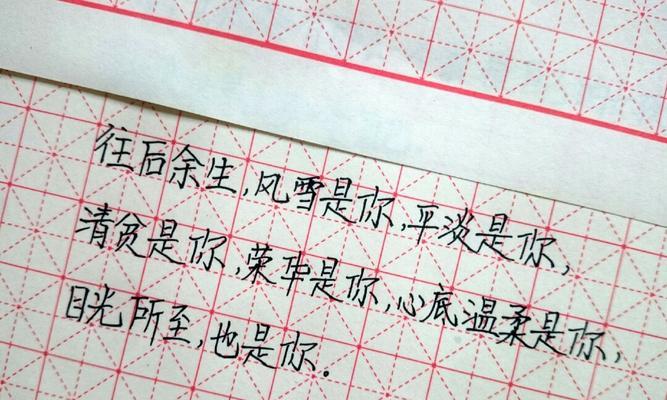 往后余生,风雪是你,平淡是你,
清贫是你,荣华是你,心底温柔是你,
目光所至,也是你.